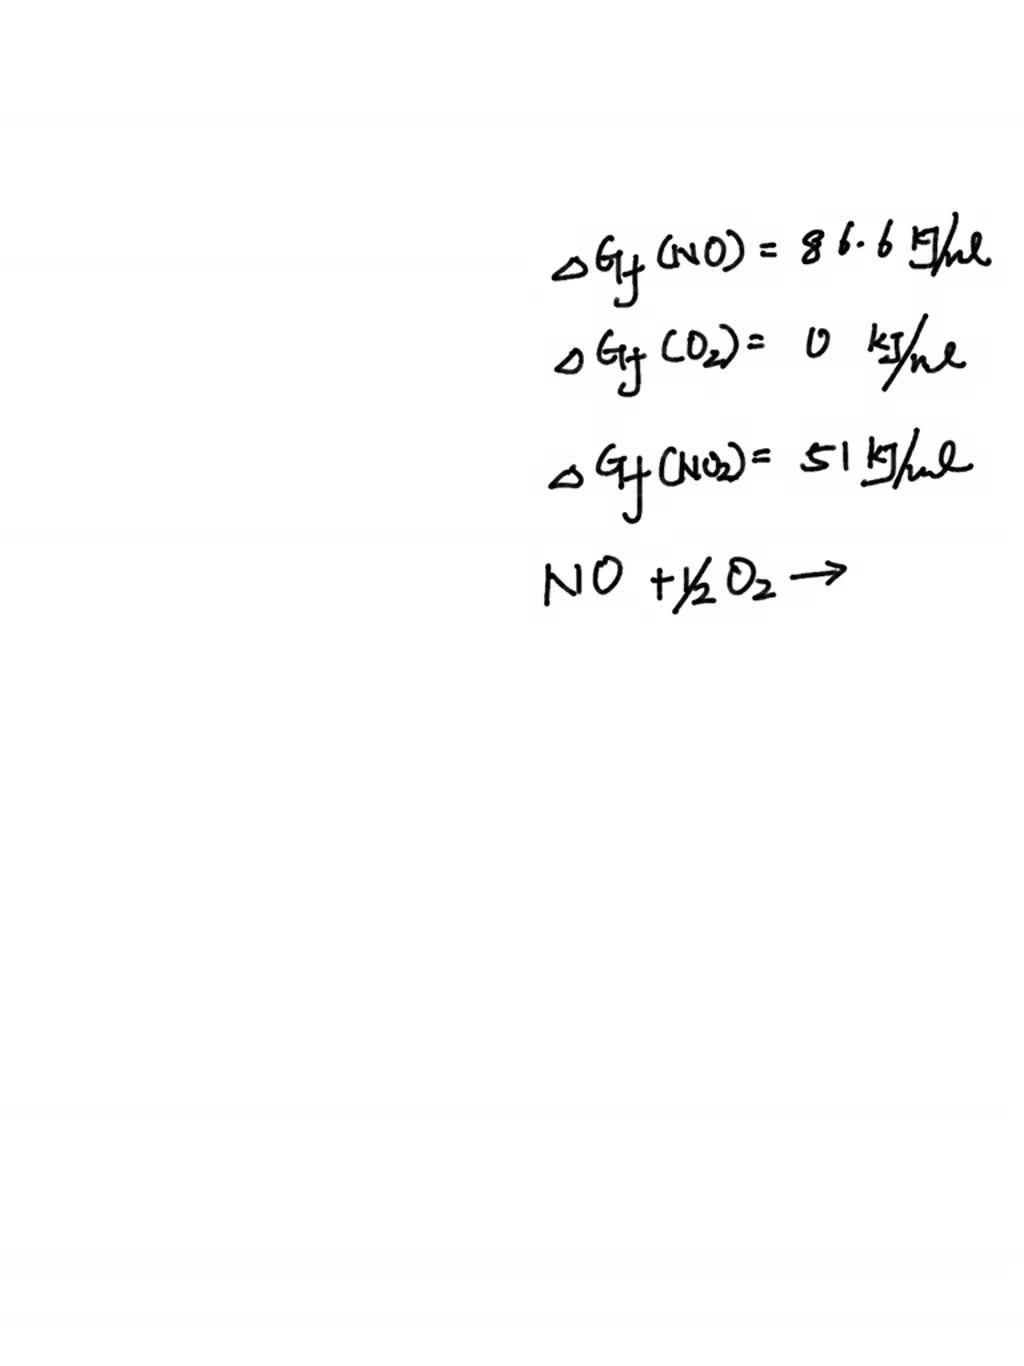 △Gf (NO) = 86.6 kJ/mol
△Gf (O₂) = 0 kJ/mol
△Gf (NO₂) = 51 kJ/mol
NO + 1/2 O₂ →